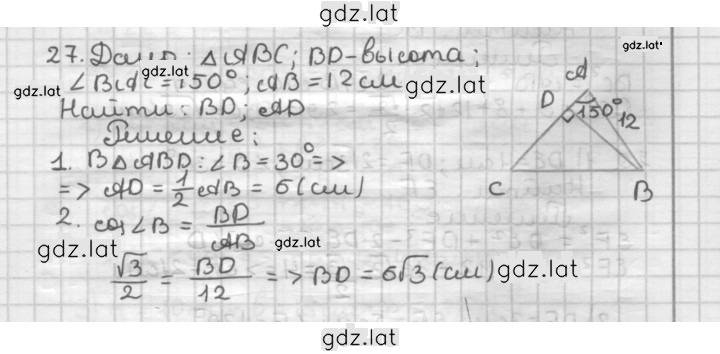 gdz.lat
27. Дано: △ABC; BD-высота;
gdz.lat
gdz.lat
gdz.lat
∠BAC = 150°; AB = 12 см
Найти: BD; AD
Решение:
1. В △ABD: ∠B = 30° =>
=> AD = 1/2 AB = 6 (см)
2. cos∠B = BD/AB
gdz.lat
gdz.lat
√3/2 = BD/12 => BD = 6√3 (см)
gdz.lat
A
D
150°
12
C
B
gdz.lat